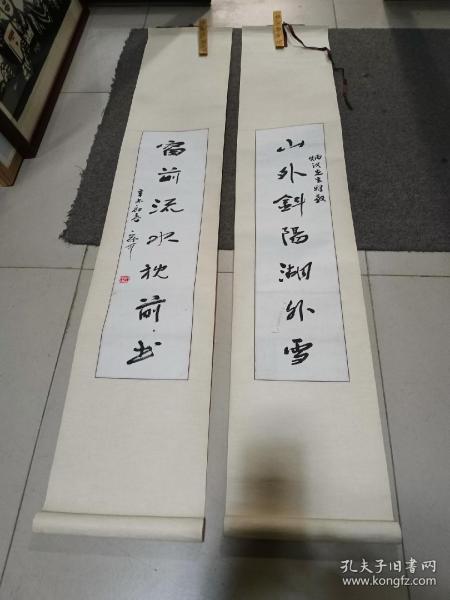 山外斜陽湖外雪
窗前流水枕前书
辛未初春
孔夫子旧书网
www.kongfz.com